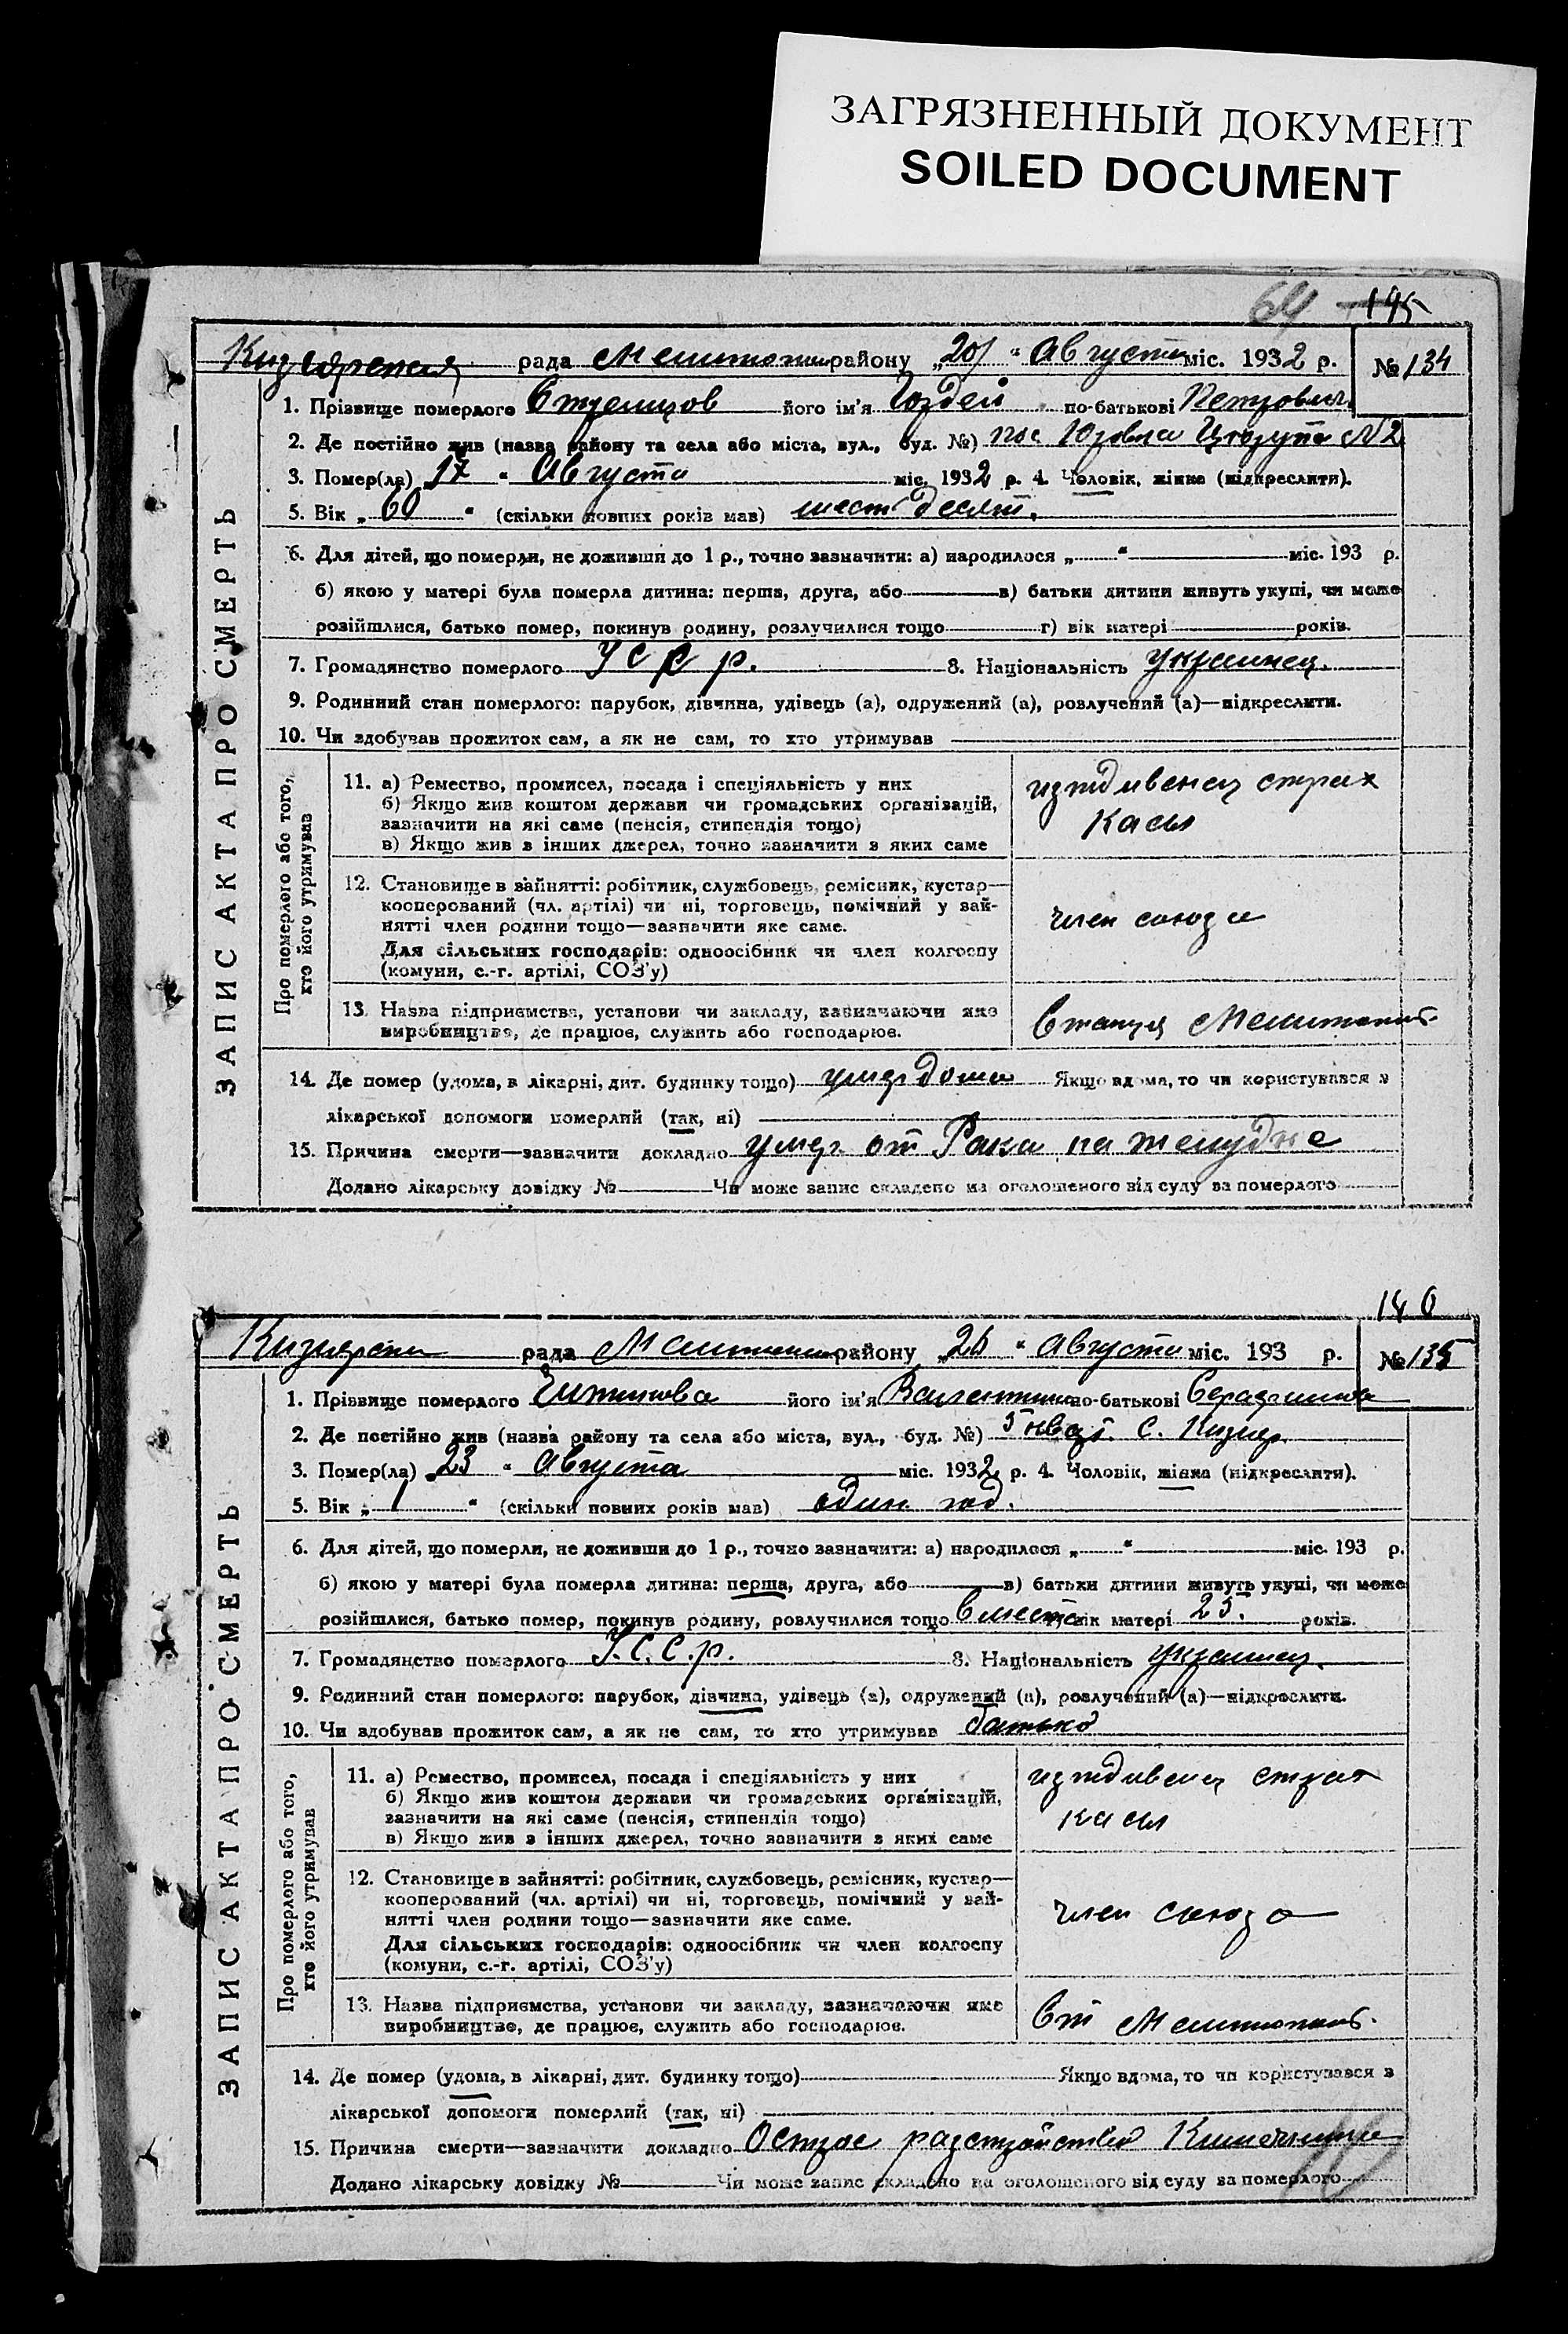 ЗАГРЯЗНЕННЫЙ ДОКУМЕНТ
SOILED DOCUMENT
64 195
рада района „20" Августа міс. 1932 р. № 134
ЗАПИС АКТА ПРО СМЕРТЬ
1. Прізвище померлого його ім'я Гордей по-батькові Петрович
2. Де постійно жив (назва району та села або міста, вул., буд. №) пос. Цюрупа №2
3. Помер(ла) 17 " Августа міс. 1932 р. 4. Чоловік, жінка (підкреслити).
5. Вік „ 60 " (скільки повних років мав) шестдесят.
6. Для дітей, що померли, не доживши до 1 р., точно зазначити: а) народилося „ " міс. 193 р.
б) якою у матері була померла дитина: перша, друга, або в) батьки дитини живуть укупі, чи може
розійшлися, батько помер, покинув родину, розлучилися тощо г) вік матері років.
7. Громадянство померлого У С С р. 8. Національність украинец.
9. Родинний стан померлого: парубок, дівчина, удівець (а), одружений (а), розлучений (а)—підкреслити.
10. Чи здобував прожиток сам, а як не сам, то хто утримував
Про померлого або того,
хто його утримував
11. а) Ремество, промисел, посада і спеціяльність у них
б) Якщо жив коштом держави чи громадських організацій,
зазначити на які саме (пенсія, стипендія тощо)
в) Якщо жив з інших джерел, точно зазначити з яких саме
иждивенец страх
Касы
12. Становище в зайнятті: робітник, службовець, ремісник, кустар—
кооперований (чл. артілі) чи ні, торговець, помічний у зай-
нятті член родини тощо—зазначити яке саме.
Для сільських господарів: одноосібник чи член колгоспу
(комуни, с.-г. артілі, СОЗ'у)
член союза
13. Назва підприємства, установи чи закладу, зазначаючи яке
виробництво, де працює, служить або господарює.
Станция Мелитополь.
14. Де помер (удома, в лікарні, дит. будинку тощо) умер дома Якщо вдома, то чи користувався з
лікарської допомоги померлий (так, ні)
15. Причина смерти—зазначити докладно умер от Рака на желудке
Додано лікарську довідку № Чи може запис складено на оголошеного від суду за померлого
рада району „ " Августа міс. 193 р. № 135
ЗАПИС АКТА ПРО СМЕРТЬ
1. Прізвище померлого його ім'я Валентина по-батькові
2. Де постійно жив (назва району та села або міста, вул., буд. №) С. Кизияр.
3. Помер(ла) 23 " Августа міс. 1932 р. 4. Чоловік, жінка (підкреслити).
5. Вік „ 1 " (скільки повних років мав) один год.
6. Для дітей, що померли, не доживши до 1 р., точно зазначити: а) народилося „ " міс. 193 р.
б) якою у матері була померла дитина: перша, друга, або в) батьки дитини живуть укупі, чи може
розійшлися, батько помер, покинув родину, розлучилися тощо вместе г) вік матері 25. років.
7. Громадянство померлого У. С. С. р. 8. Національність украинец.
9. Родинний стан померлого: парубок, дівчина, удівець (а), одружений (а), розлучений (а)—підкреслити.
10. Чи здобував прожиток сам, а як не сам, то хто утримував батько
Про померлого або того,
хто його утримував
11. а) Ремество, промисел, посада і спеціяльність у них
б) Якщо жив коштом держави чи громадських організацій,
зазначити на які саме (пенсія, стипендія тощо)
в) Якщо жив з інших джерел, точно зазначити з яких саме
иждивенец страх
касы
12. Становище в зайнятті: робітник, службовець, ремісник, кустар—
кооперований (чл. артілі) чи ні, торговець, помічний у зай-
нятті член родини тощо—зазначити яке саме.
Для сільських господарів: одноосібник чи член колгоспу
(комуни, с.-г. артілі, СОЗ'у)
член союза
13. Назва підприємства, установи чи закладу, зазначаючи яке
виробництво, де працює, служить або господарює.
Ст Мелитополь.
14. Де помер (удома, в лікарні, дит. будинку тощо) Якщо вдома, то чи користувався з
лікарської допомоги померлий (так, ні)
15. Причина смерти—зазначити докладно Острое разстройство
Додано лікарську довідку № Чи може запис складено на оголошеного від суду за померлого